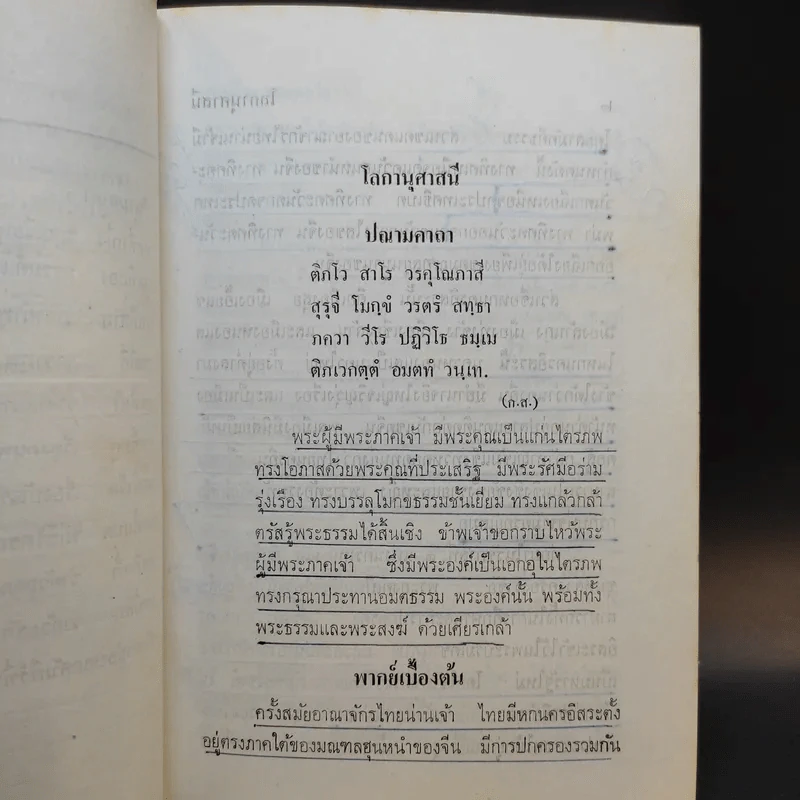 โลกานุศาสนี
ปณามคาถา
ติภโว สาโร วรคุโณภาสี
สุรุจี โมกฺขํ วรตรํ สทฺธา
ภควา วีโร ปฏิวิโธ ธมฺเม
ติภเวกตฺตํ อมตทํ วนฺเท.
(ก.ส.)
พระผู้มีพระภาคเจ้า มีพระคุณเป็นแก่นไตรภพ
ทรงโอภาสด้วยพระคุณที่ประเสริฐ มีพระรัศมีอร่าม
รุ่งเรือง ทรงบรรลุโมกขธรรมชั้นเยี่ยม ทรงแกล้วกล้า
ตรัสรู้พระธรรมได้สิ้นเชิง ข้าพเจ้าขอกราบไหว้พระ
ผู้มีพระภาคเจ้า ซึ่งมีพระองค์เป็นเอกอุในไตรภพ
ทรงกรุณาประทานอมตธรรม พระองค์นั้น พร้อมทั้ง
พระธรรมและพระสงฆ์ ด้วยเศียรเกล้า
พากย์เบื้องต้น
ครั้งสมัยอาณาจักรไทยน่านเจ้า ไทยมีหกนครอิสระตั้ง
อยู่ตรงภาคใต้ของมณฑลฮุนหนำของจีน มีการปกครองรวมกัน